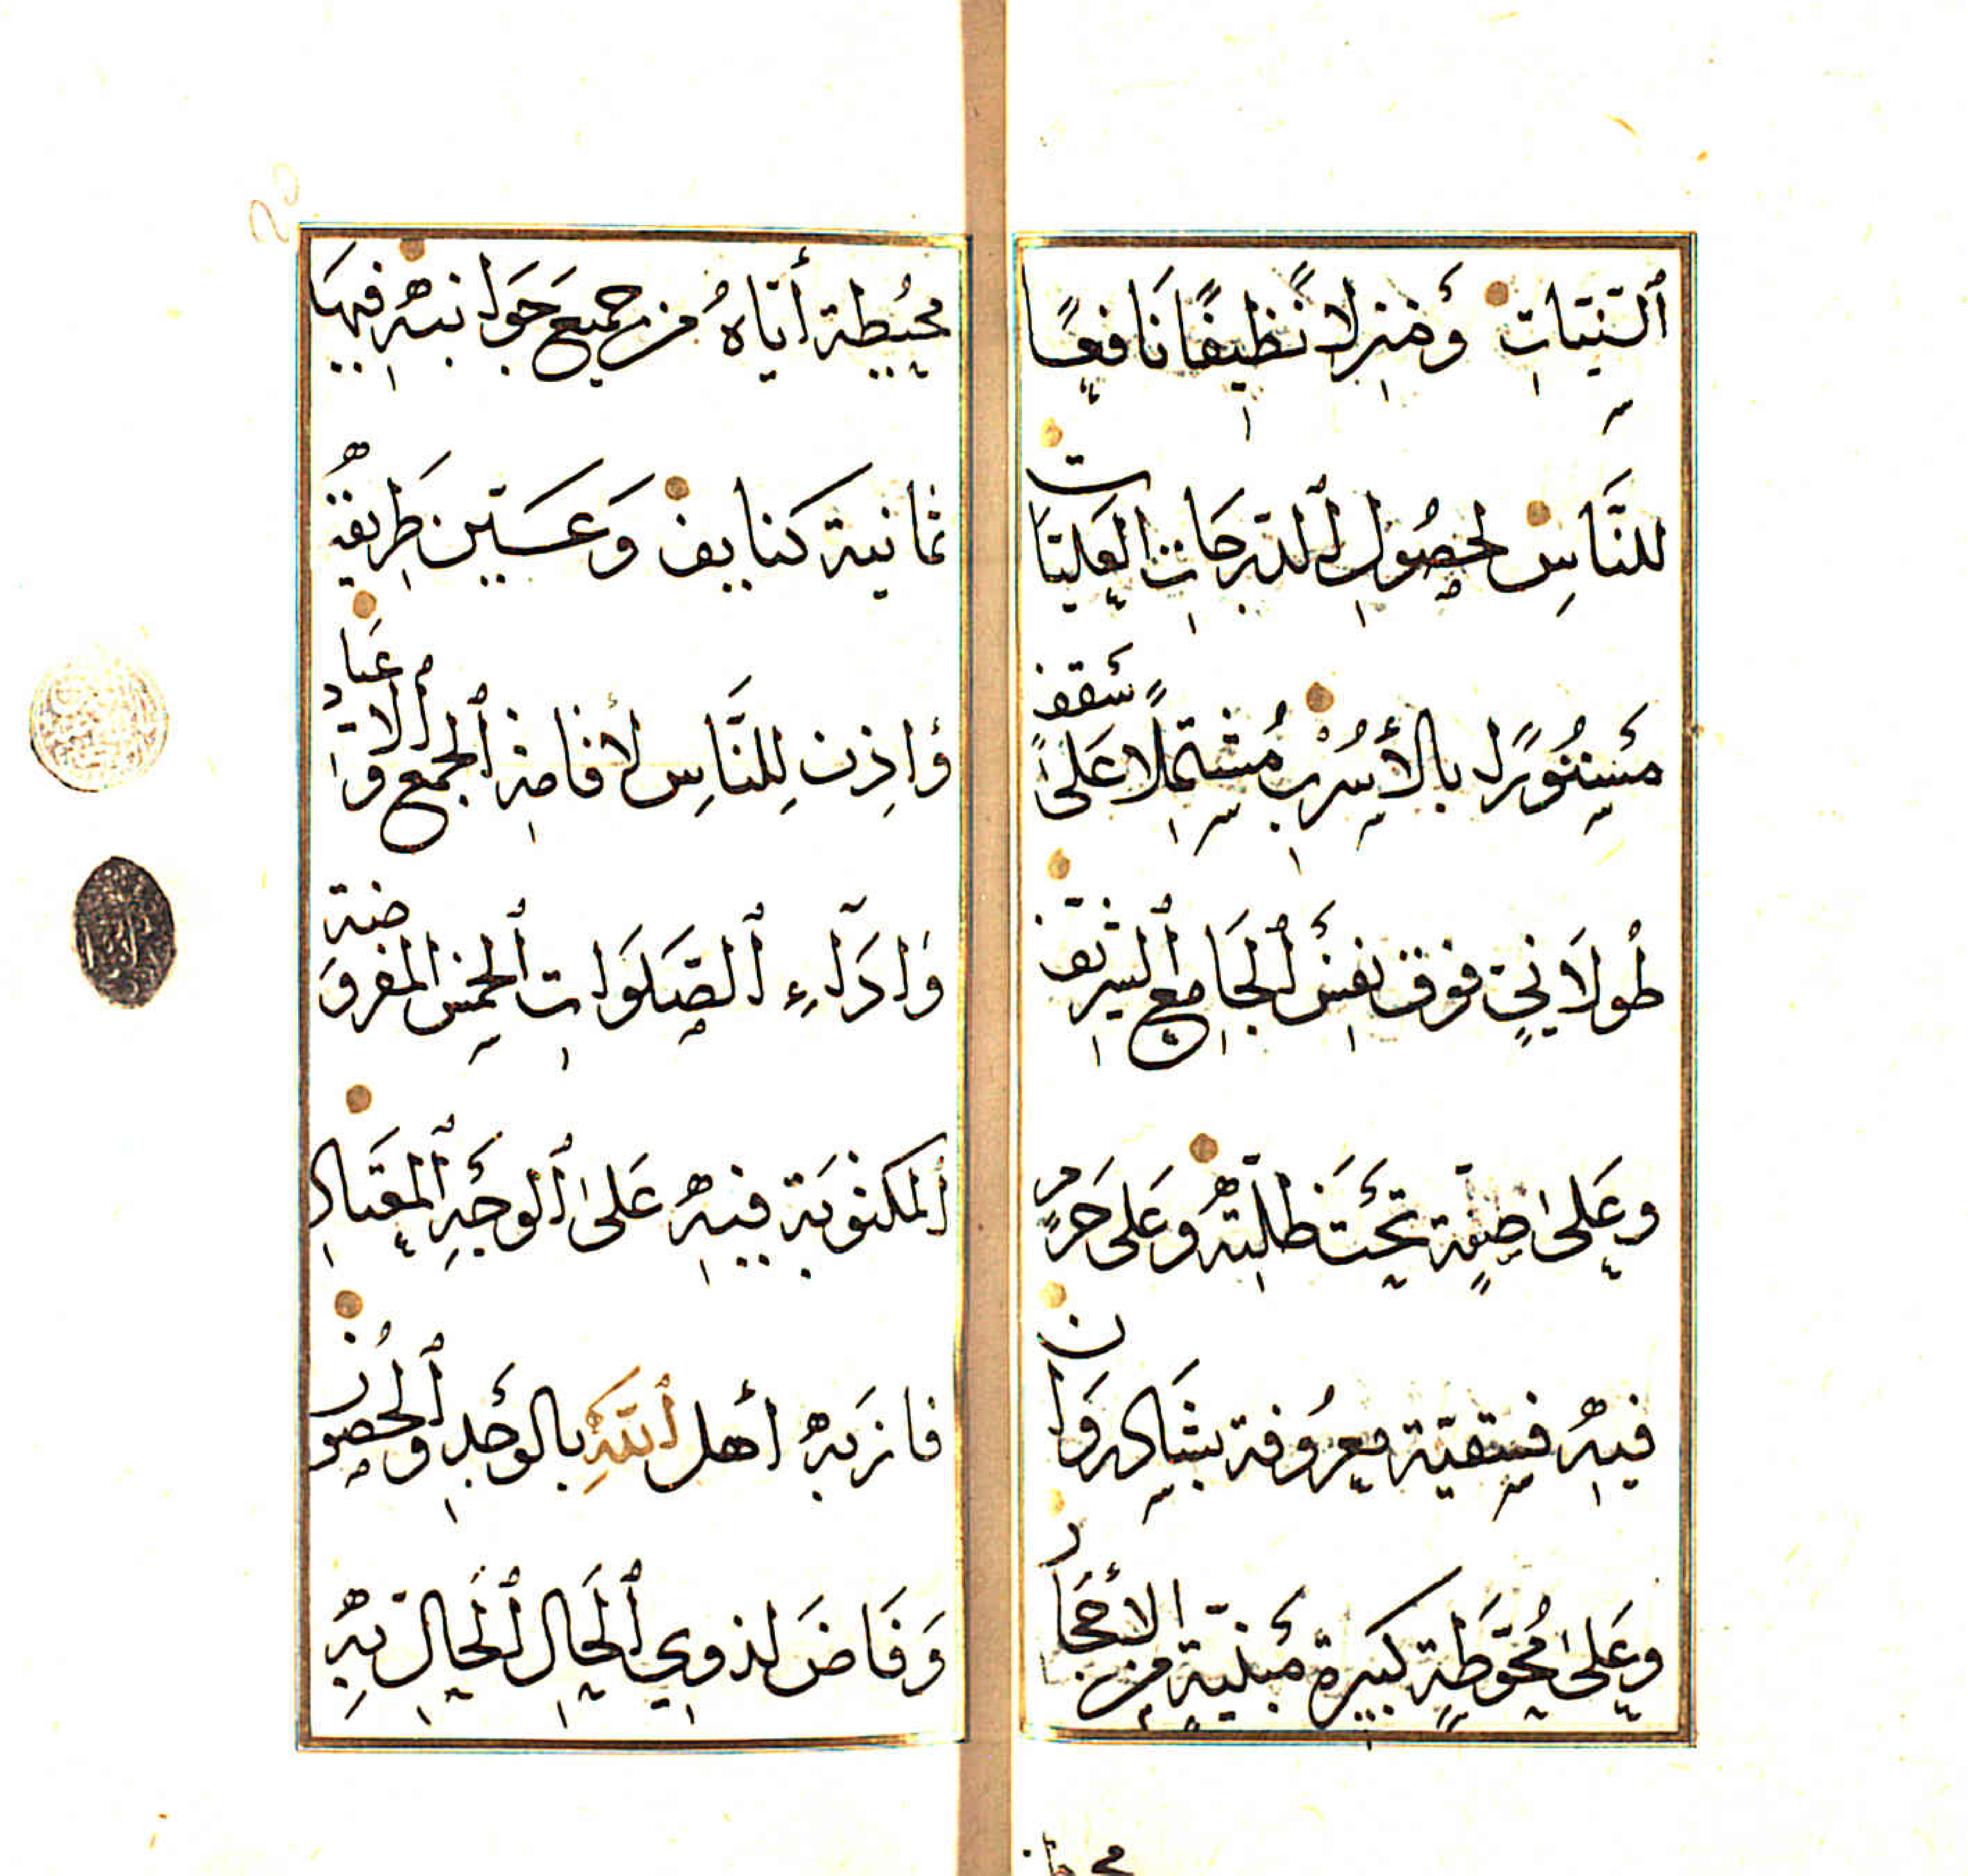 ٱلنِّيَّاتِ وَمَنْزِلًا نَّظِيفًا نَافِعًا
للنَّاسِ لحصُولِ ٱلدّرجَاتِ العَليّات
مَسْتُورًا بالأُسْرُبِ مُشْتَمِلًا عَلىٰ سَقفٍ
طُولَانيٍّ فوق نفسِ ٱلجَامعِ ٱلشريف
وعَلىٰ صفّةٍ تحْتَ ظلّتهِ وعَلى حَرمٍ
فيهِ فسقيّة معرُوفة بشَادروَان
وعَلىٰ مُحوَّطةٍ كبيرة مَبنيّةٍ من الأحجَار
محيطة
محيُطة أيّاهُ من جميع جَوَانبهِ فيهَا
ثمانية كنايف وَعسَّين طَريقهُ
وَاذِن لِلنَّاسِ لأقامةِ ٱلجمع وَٱلاعيَاد
وَادَآءِ ٱلصّلَوَاتِ ٱلخمس المفروضة
المكتوبَة فيهِ عَلىٰ ٱلوجَهِ ٱلمعتَادِ
فانزبهِ أهل ٱللّهِ بالوَجدِ وَٱلحضُور
وَفَاضَ لذوي ٱلحَالِ ٱلحَالِ بّهِ